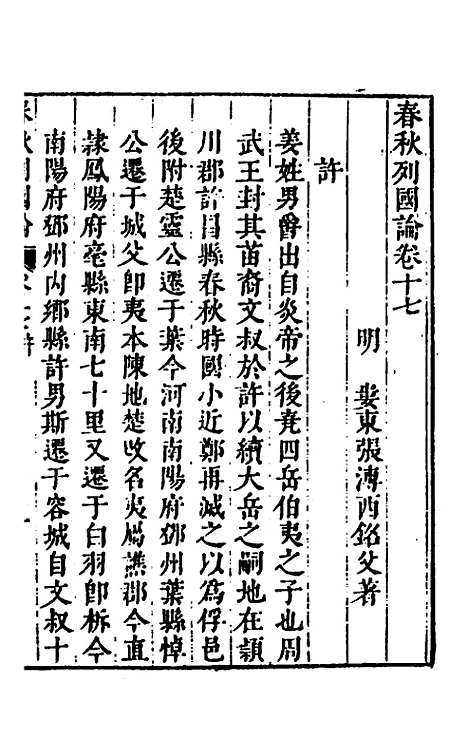 春秋列國論卷十七
明　婁東張溥西銘父著
許
姜姓男爵出自炎帝之後堯四岳伯夷之子也周
武王封其苗裔文叔於許以續大岳之嗣地在潁
川郡許昌縣春秋時國小近鄭再滅之以爲俘邑
後附楚靈公遷于葉今河南南陽府鄧州葉縣悼
公遷于城父卽夷本陳地楚改名夷屬譙郡今直
隸鳳陽府亳縣東南七十里又遷于白羽卽析今
南陽府鄧州内鄉縣許男斯遷于容城自文叔十